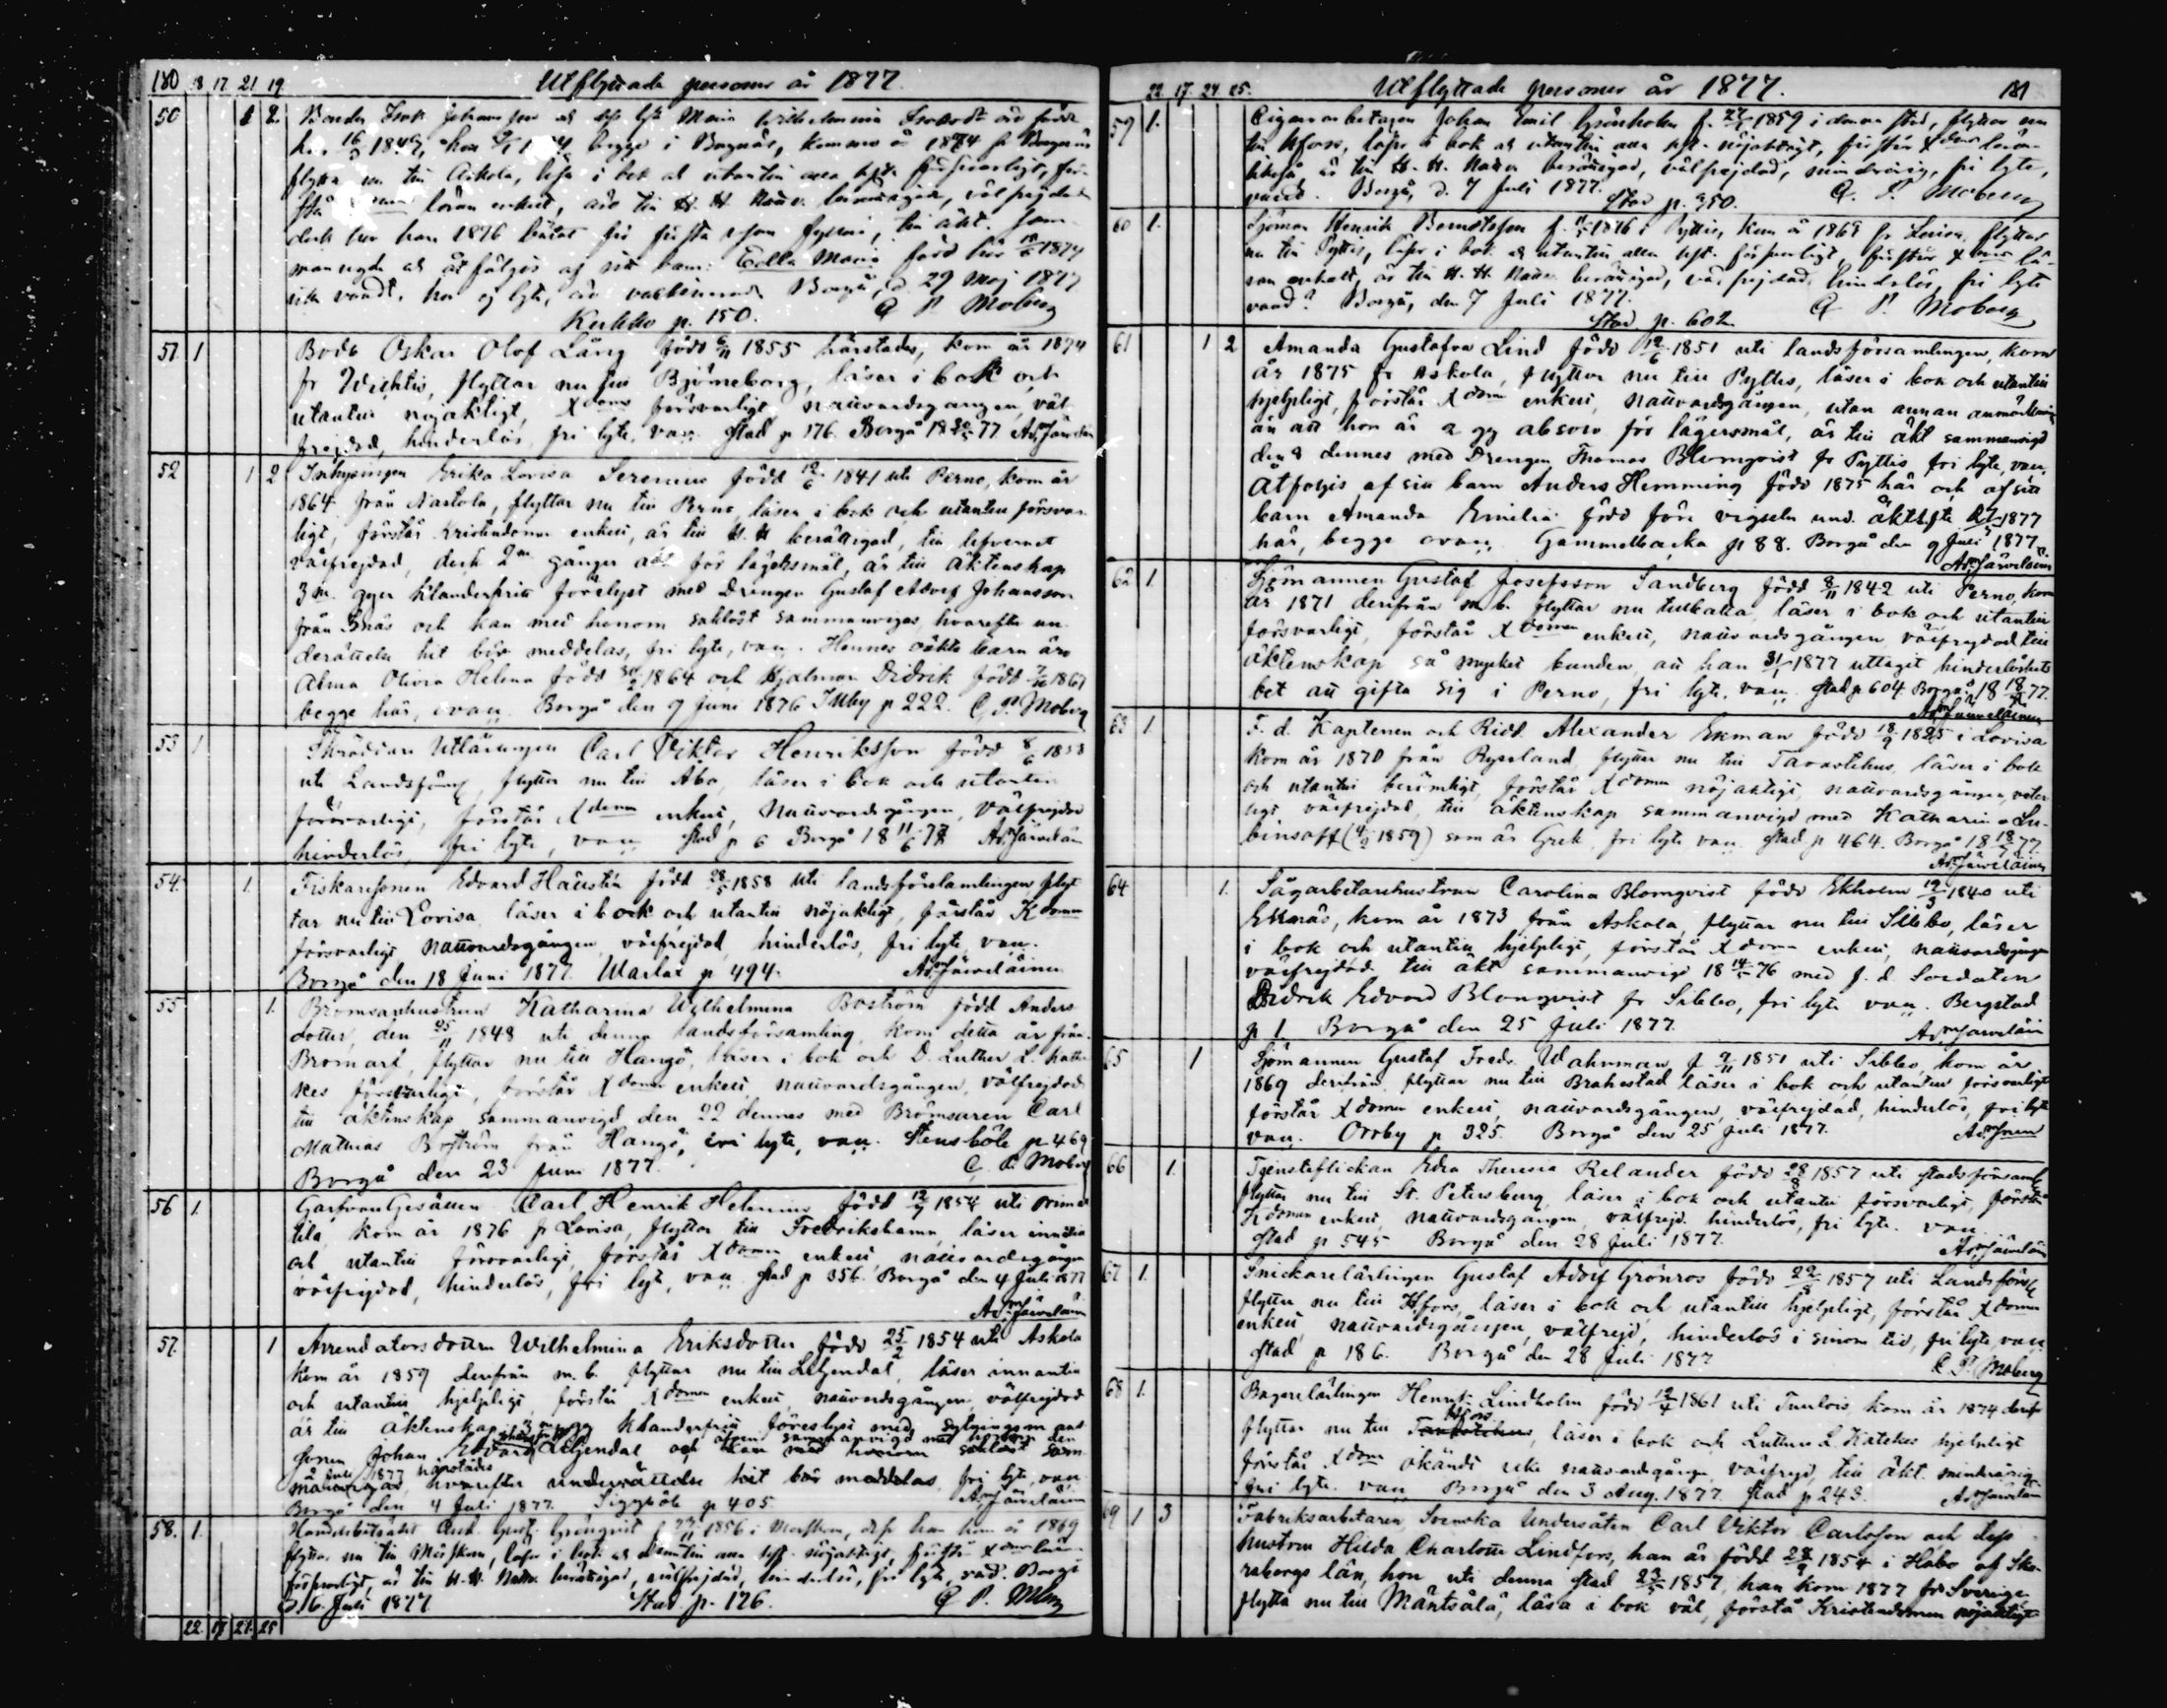 180 18 17 21 19 Utflyttade personer år 1877.
50 1 2. Bonden Isak Johansson och hustru Maria Wilhelmina äro födde
han 16 1849, hon begge i Borgnäs, komma år 1874 fr Borgnäs
flytta nu till Askola, läsa i bok och utantill försvarligt, för-
stå läran enkelt, äro till H. H. Nattv. berättigade, välfrejdade
dock har han 1876 bötat för första resan fylleri, till äkt. sam-
manvigde och åtföljes af sitt barn: Edla Maria född här 1874
vacc. fri lyte, äro vaccinerade Borgå, d 29 Maj 1877
Kerkko p. 150. C P. Moberg
51 1 Bode Oskar Olof Lång född 6/11 1855 härstädes, kom år 1874
fr Wichtis, flyttar nu till Björneborg, läser i bok och
utantill nöjaktigt, Xdoms försvarligt, nattvardsgången, väl
frejdad, hinderlös, fri lyte, vacc. Stad p 176. Borgå 18 77 Ad. Järveläin
52 1 2 Inhysingen Erika Lovisa Serenius född 12/6 1841 uti Perno, kom år
1864 från Nastola, flyttar nu till Perno, läser i bok och utantill försvar
ligt, förstår kristendomen enkelt, är till H. H berättigad, till lefvernet
välfrejdad, dock 2ne gånger abs för lägersmål, är till äktenskap
3 ne ggr klanderfritt förelyst med Drengen Gustaf Adolf Johansson
från och kan med honom saklöst sammanvigas, hvarefter un-
derättelse hit bör meddelas, fri lyte, vacc. Hennes oäkta barn äro
Alma Olivia Helena född 30 1864 och Hjalmar Didrik född 1867
begge här, ovacc. Borgå den 9 Juni 1876 Illby p 222. C. P. Moberg
53 1 Skräddare Utlärlingen Carl Viktor Henriksson född 8/6 1858
uti Landsförs., flyttar nu till Åbo, läser i bok och utantill
försvarligt, förstår Xdomen enkelt, Nattvardsgången, välfrejdad
hinderlös, fri lyte, vacc. Stad p 6 Borgå 18 11/6 77 Ad. Järveläin
54. 1. Fiskaresonen Edvard Haustén född 28/5 1858 uti landsförsamlingen flyt
tar nu till Lovisa, läser i bok och utantill nöjaktigt, förstår Xdomen
försvarligt nattvardsgången, välfrejdad, hinderlös, fri lyte, vacc.
Borgå den 18 Juni 1877. Warlax p 494. Ad. Järveläinen
55 1. Bromsarehustrun Katharina Wilhelmina Boström född Anders
dotter, den 25/11 1848 uti denna landsförsamling, kom detta år från
Bromarf, flyttar nu till Hangö, läser i bok och D. Luther L. kate-
kes försvarligt, förstår Xdomen enkelt, nattvardsgången, välfrejdad
till äktenskap sammanvigd den 22 dennes med Bromsaren Carl
Mathias Boström från Hangö, fri lyte, vacc. Stensböle p 469
Borgå den 23 Juni 1877. C. P. Moberg
56 1. Garfvare Gesällen Carl Henrik Helenius född 12/9 1854 uti Orimat
tila, kom år 1876 fr Lovisa, flyttar till Fredrikshamn, läser innantill
och utantill försvarligt, förstår Xdomen enkelt, nattvardsgången
välfrejdad, hinderlös, fri lyte, vacc. Stad p 356. Borgå den 4 Juli 1877
Ad. Järveläin
57. 1 Arrendatorsdottern Wilhelmina Eriksdotter född 25/2 1854 uti Askola
kom år 1859 derifrån m. b. flyttar nu till Liljendal, läser innantill
och utantill hjelpligt, förstår Xdomen enkelt, nattvardsgången, välfrejdad
är till äktenskap 3 ne ggr klanderfritt förelyst med
sonen Johan Edvard Liljendal och kan med honom saklöst sam
Juli 1877 härstädes
manvigas, hvarefter underrättelse hit bör meddelas, fri lyte, vacc
Borgå den 4 Juli 1877. Siggböle p 405. Ad. Järveläin
58. 1. Handelsbiträdet Gust. Grönqvist f 23/11 1856 i Mörskom, kom år 1869
flyttar nu till Mörskom, läser i bok och utantill nöjaktigt, förstår Xdoms läran
försvarligt, är till H. H. Nattv. berättigad, välfrejdad, hinderlös, fri lyte, vacc. Borgå
d. 6 Juli 1877 Stad p. 126. C P. Mbrg
22 17 21. 25
22. 17. 24. 25. Utflyttade personer år 1877. 181
59 1. Cigarrarbetaren Johan Emil Grönholm f. 27 1859 i denna stad, flyttar nu
till Hfors, läser i bok och utantill nöjaktigt, förstår Xdoms läran
likaså, är till H. H. Nattv. berättigad, välfrejdad, minderårig, fri lyte,
vacc. Borgå, d. 7 Juli 1877. Stad p. 350. C. P. Moberg
60 1. Sjöman Henrik Berndtsson f. Pyttis, kom år 1868 fr Lovisa, flyttar
nu till Pyttis, läser i bok och utantill försvarligt, förstår Xdoms lä-
ran enkelt, är till H. H. Nattv. berättigad, välfrejdad, hinderlös, fri lyte
vacc. Borgå, den 7 Juli 1877. Stad p. 602. C P. Moberg
61 1 2 Amanda Gustafva Lind född 12/6 1851 uti landsförsamlingen, kom
år 1875 fr Askola, flyttar nu till Pyttis, läser i bok och utantill
hjelpligt, förstår Xdomen enkelt, nattvardsgången, utan annan anmärkning
än att hon är 2 gg absolv för lägersmål, är till äkt sammanvigd
den 8 dennes med Drengen Thomas Blomqvist fr Pyttis, fri lyte, vacc,
Åtföljes af sin barn Anders Hemming född 1875 här och af sitt
barn Amanda Emilia född före vigseln und. äktsfte 27 1877
här, begge ovacc. Gammelbacka p 88. Borgå den 9 Juli 1877
Ad. Järveläinen
62 1. Sjömannen Gustaf Josefsson Sandberg född 8/11 1842 uti Perno, kom
år 1871 derifrån m. b. flyttar nu tillbaka, läser i bok och utantill
försvarligt, förstår Xdomen enkelt, nattvardsgången, välfrejdad, till
äktenskap så mycket bunden, att han 31 1877 uttagit hinderlöshets
bet att gifta sig i Perno, fri lyte, vacc. Stad p 604 Borgå 18 18 77.
Ad. Järveläinen
63 1. F. d. Kaptenen och Ridd. Alexander Ekman född 18/9 1825 i Lovisa
kom år 1870 från Ryssland, flyttar nu till Tavastehus, läser i bok
och utantill berömligt, förstår Xdomen nöjaktigt, nattvardsgången, veter-
ligt välfrejdad, till äktenskap sammanvigd med Katharina Lu-
binsoff (4/2 1859) som är Grek, fri lyte vacc. Stad p 464. Borgå 18 18/7 77
Ad. Järveläinen
64 1. Sågarbetarehustrun Carolina Blomqvist född Ekholm 19/3 1840 uti
Ekenäs, kom år 1873 från Askola, flyttar nu till Sibbo, läser
i bok och utantill hjelpligt, förstår Xdomen enkelt, nattvardsgången
välfrejdad, till äkt sammanvigd 18 14/5 76 med f. d. Soldaten
Didrik Edvard Blomqvist fr Sibbo, fri lyte vacc. Bergstad
p 1. Borgå den 25 Juli 1877. Ad. Järveläin
65 1 Sjömannen Gustaf Fredr. Wahrman f 9/11 1851 uti Sibbo, kom år
1869 derifrån, flyttar nu till Brahestad läser i bok och utantill försvarligt
förstår Xdomen enkelt, nattvardsgången, välfrejdad, hinderlös, fri lyte
vacc. Orrby p 325. Borgå den 25 Juli 1877.
66 1. Tjensteflickan Edla Theresia Relander född 28/8 1857 uti stadsförsaml
flyttar nu till St. Petersburg, läser i bok och utantill försvarligt, förstår
Xdomen enkelt, nattvardsgången, välfrejd. hinderlös, fri lyte. vacc
Stad p 545 Borgå den 28 Juli 1877. Ad. Järveläin
67 1. Snickarelärlingen Gustaf Adolf Grönros född 22/8 1857 uti Landsförs
flyttar nu till Hfors, läser i bok och utantill hjelpligt, förstår Xdomen
enkelt, nattvardsgången, välfrejd, hinderlös i sinom tid, fri lyte, vacc
Stad p 186. Borgå den 28 Juli 1877 C. P. Moberg
68 1. Bagarelärlingen Henrik Lindholm född 12/4 1861 uti Tuulois, kom år 1874 derifr
Hfors
flyttar nu till Tavastehus, läser i bok och Luthers L. Katekes hjelpligt
förstår Xdomen okändt icke nattvardsgången, välfrejd, till äkt. minderårig
fri lyte. vacc Borgå den 3 Aug. 1877 Stad p 243. Ad. Järveläin
69 1 3 Fabriksarbetaren, Svenska Undersåten Carl Viktor Carlsson och dess
hustru Hilda Charlotte Lindfors, han är född 28/9 1854 i Habo af Ska-
raborgs län, hon uti denna stad 23/5 1857, han kom 1877 för Sverige
flytta nu till Mäntsälä, läsa i bok väl, förstå Kristendomen nöjaktigt